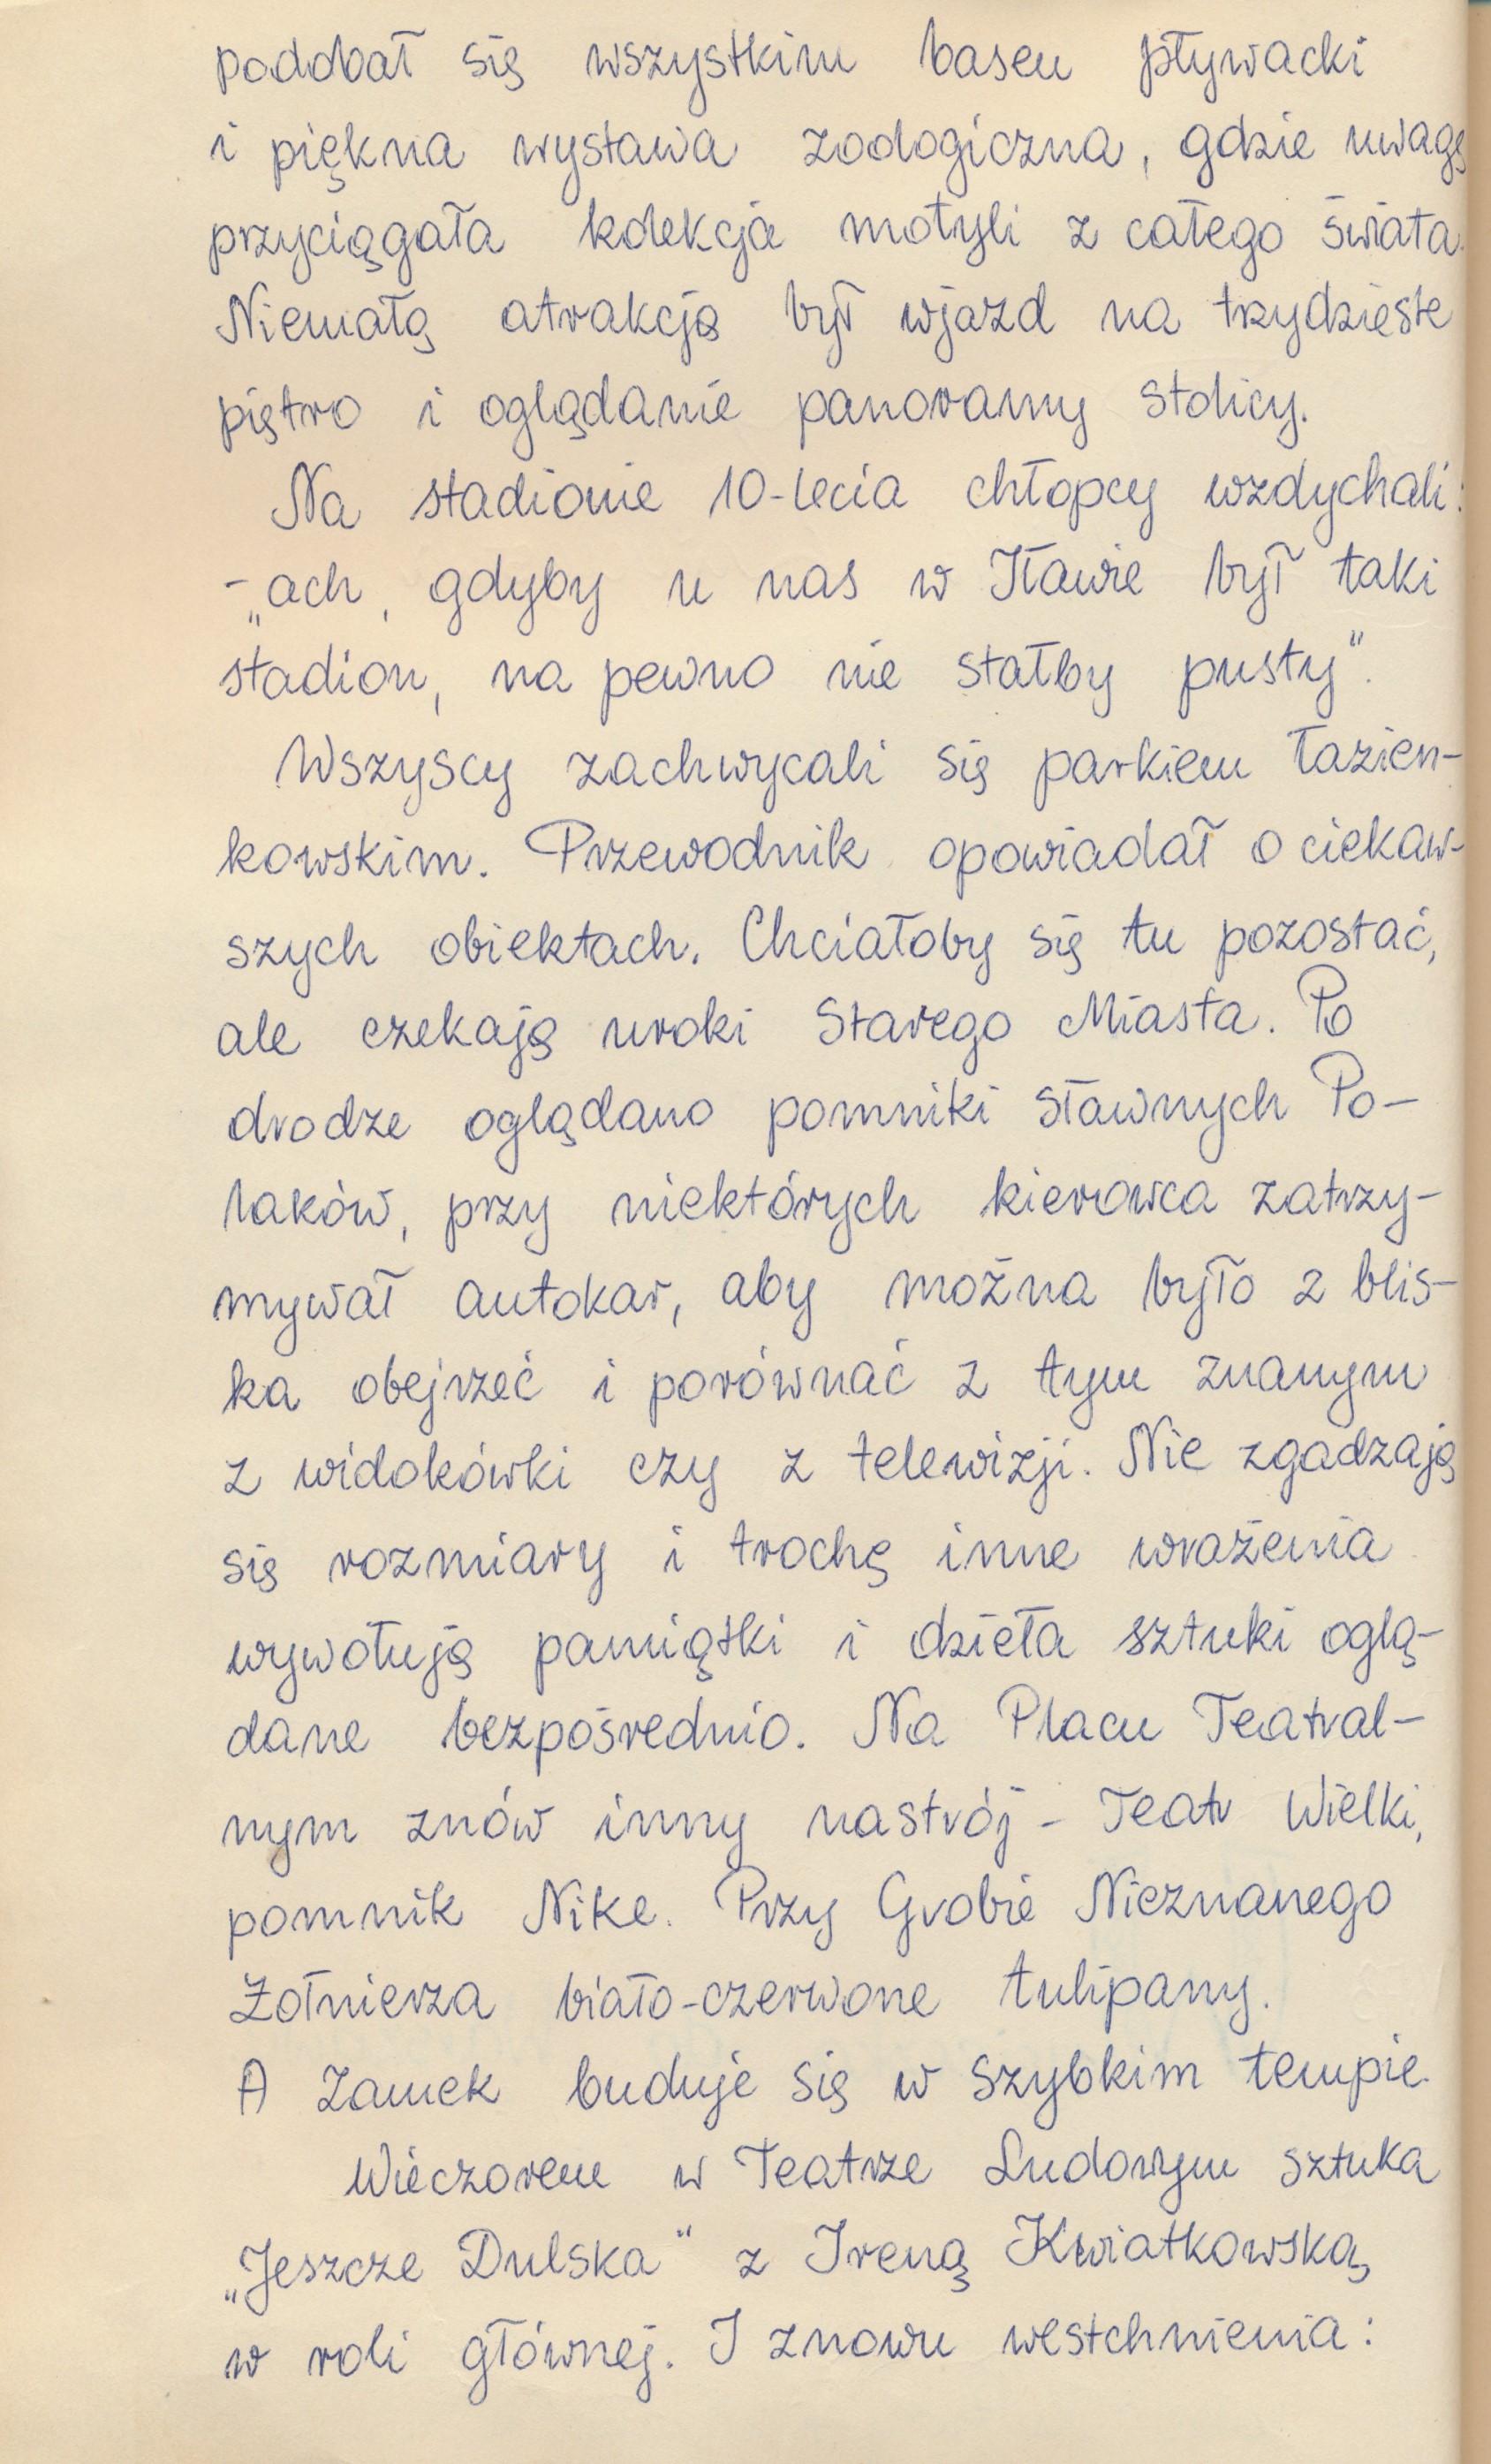 podobał się wszystkim basen pływacki
i piękna wystawa zoologiczna, gdzie uwagę
przyciągała kolekcja motyli z całego świata.
Niemałą atrakcją był wjazd na trzydzieste
piętro i oglądanie panoramy stolicy.
Na stadionie 10-lecia chłopcy wzdychali:
-„ach, gdyby u nas w Iławie był taki
stadion, na pewno nie stałby pusty".
Wszyscy zachwycali się parkiem łazien-
kowskim. Przewodnik opowiadał o ciekaw-
szych obiektach. Chciałoby się tu pozostać,
ale czekają uroki Starego Miasta. Po
drodze oglądano pomniki sławnych Po-
laków, przy niektórych kierowca zatrzy-
mywał autokar, aby można było z blis-
ka obejrzeć i porównać z tym znanym
z widokówki czy z telewizji. Nie zgadzają
się rozmiary i trochę inne wrażenia
wywołują pamiątki i dzieła sztuki oglą-
dane bezpośrednio. Na Placu Teatral-
nym znów inny nastrój - Teatr Wielki,
pomnik Nike. Przy Grobie Nieznanego
Żołnierza biało-czerwone tulipany.
A Zamek buduje się w szybkim tempie.
Wieczorem w Teatrze Ludowym sztuka
„Jeszcze Dulska" z Ireną Kwiatkowską
w roli głównej. I znowu westchnienia: